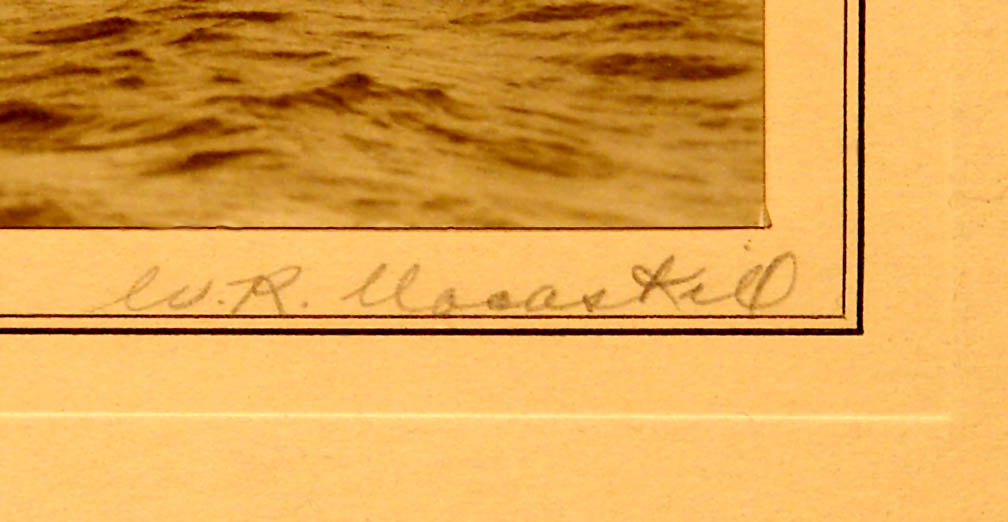 W. R. Macaskill